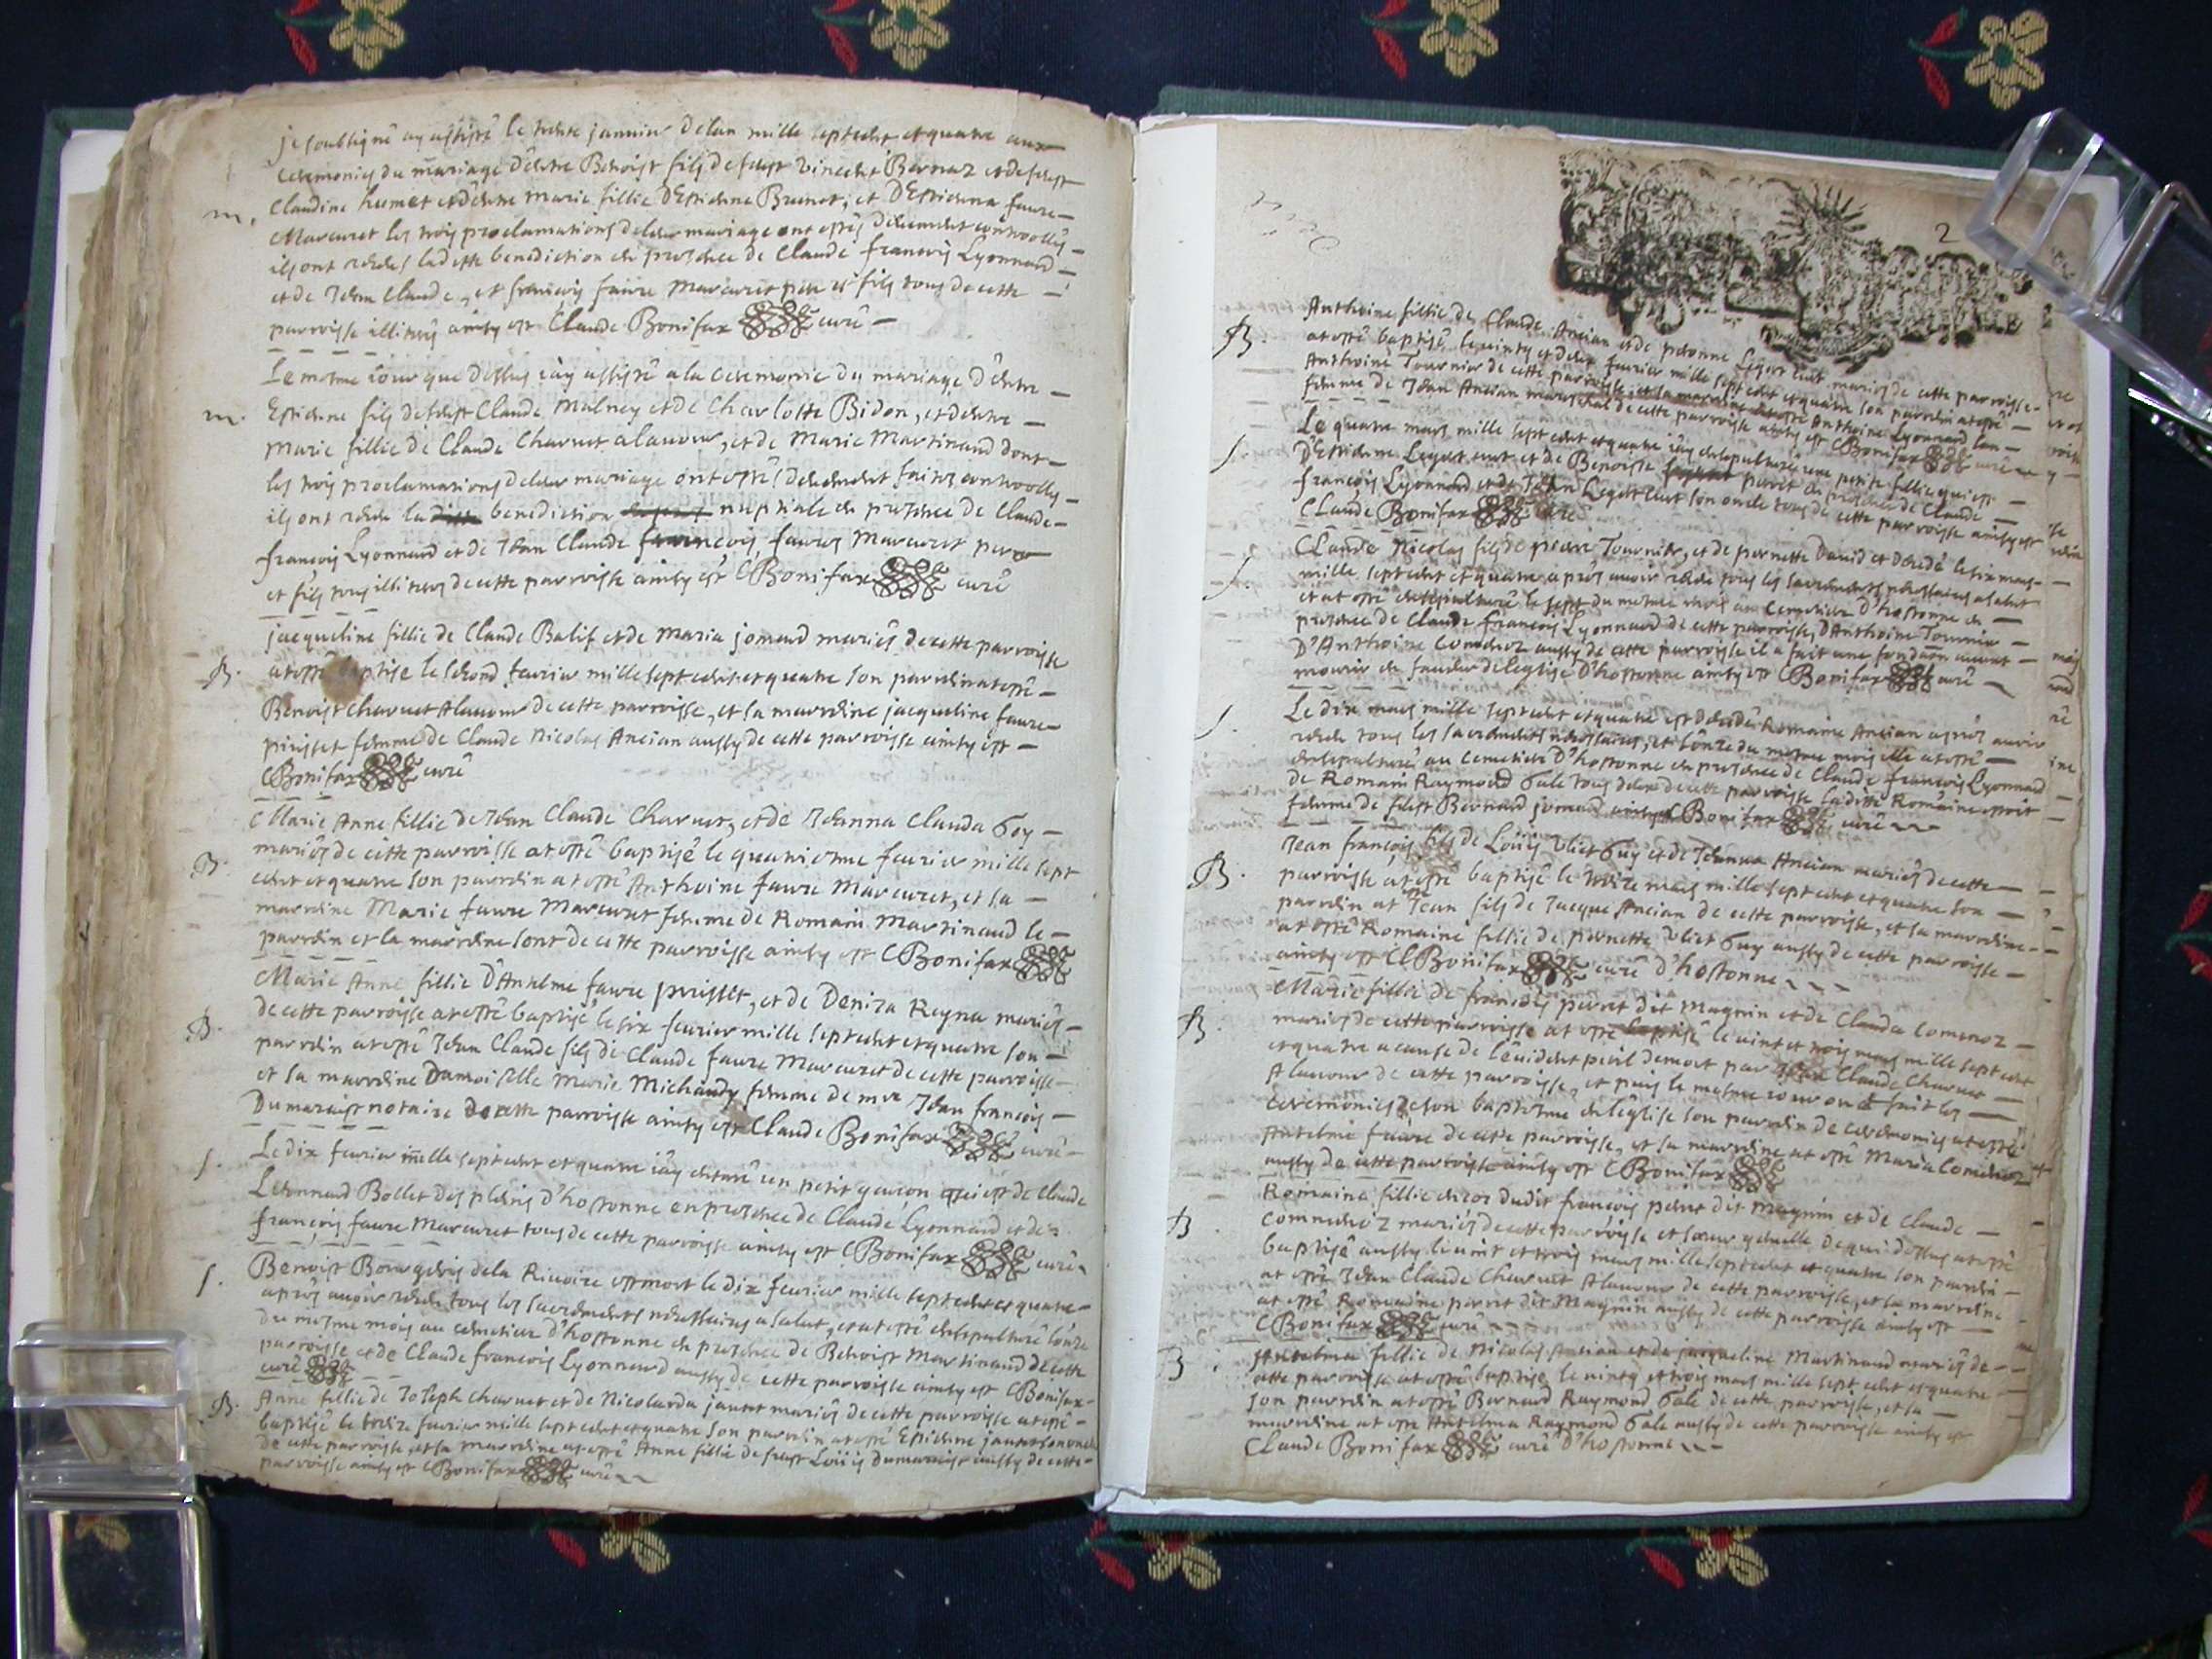 je soubsigné ay assisté le trente janvier de lan mille sept cent et quatre aux
ceremonies du mariage d'entre Benoist fils de feust Vincent Bernaz et de feust
m. Claudine humet et d'entre Marie fillie d'Estienne Brunet, et d'Estienna faure
Marcuret les trois proclamations de leur mariage ont estés deuement controollés
ils ont receu ladette benediction en presence de Claude françois Lyonnard
et de Jean Claude, et françois faure Marcuret pere et fils tous de cette
parroisse illiterés ainsy est Claude Bonifax curé
Le mesme iour que dessus i'ay assisté a la ceremonie du mariage d'entre
m. Estienne fils de feust Claude Malney et de Charlotte Bidon, et d'entre
Marie fillie de Claude Charvet alavour, et de Marie Martinand dont
les trois proclamations de leur mariage ont esté deuement faites controollés
ils ont receu la benediction nuptiale en presence de Claude
françois Lyonnard et de Jean Claude françois faures Marcuret pere
et fils tous illiteres de cette parroisse ainsy est CBonifax curé
jacqueline fillie de Claude Balif et de Maria jomard mariés de cette parroisse
B. at esté baptise le second feurier mille sept cent et quatre son parrein at esté
Benoist Charvet Alavour de cette parroisse, et sa marreine jacqueline faure
perisset femme de Claude Nicolas Ancian aussy de cette parroisse ainsy est
CBonifax curé
Marie Anne fillie de Jean Claude Charvet, et de Jeanna Clauda Goy
B. mariés de cette parroisse at esté baptisé le quatrieme feurier mille sept
cent et quatre son parrein at esté Anthoine faure Marcuret, et sa
marreine Marie faure Marcuret femme de Romain Martinand le
parrein et la marreine sont de cette parroisse ainsy est CBonifax
Marie Anne fillie d'Antelme faure perisset, et de Deniza Reyna mariés
B. de cette parroisse at esté baptisé le six feurier mille sept cent et quatre son
parrein at esté Jean Claude fils de Claude faure Marcuret de cette parroisse
et sa marreine Damoiselle Marie Michaudy femme de mre Jean françois
Dumaraist notaire de cette parroisse ainsy est Claude Bonifax curé
s. Le dix feurier mille sept cent et quatre i'ay enterré un petit garcon qui est de Claude
Leonnard Bollet des plains d'hostonne en presence de Claude Lyonnard et de
françois faure Marcuret tous de cette parroisse ainsy est CBonifax curé
s. Benoist Bourgeois de la Rivoire est mort le dix feurier mille sept cent et quatre
apres avoir receu tous les sacrements necessaires a salut, et at esté ensepulturé l'onze
du mesme mois au cemetier d'hostonne en presence de Benoist Martinand de cette
parroisse et de Claude françois Lyonnard aussy de cette parroisse ainsy est CBonifax
curé
B. Anne fillie de Joseph Charvet et de Nicolarda janet mariés de cette parroisse at esté
baptisé le treize feurier mille sept cent et quatre son parrein at esté Estienne janet son oncle
de cette parroisse, et sa marreine at esté Anne fillie de feust Loüis Dumaraist aussy de cette
parroisse ainsy est CBonifax curé
2
B. Anthoine fillie de Claude Ancian et de peronne Legert mariés de cette parroisse
at esté baptisé le vints et deux feurier mille sept cent et quatre son parrein at esté
Anthoine Tournier de cette parroisse, et sa marreine at esté Anthoine Lyonnard
femme de Jean Ancian mareschal de cette parroisse ainsy est CBonifax curé
s. Le quatre mars mille sept cent et quatre i'ay ensepulturé une petite fillie qui est
d'Estienne et de Benoiste perret en presence de Claude
françois Lyonnard et de Jean son oncle tous de cette parroisse ainsy est
Claude Bonifax curé
s. Claude Nicolas fils de pierre Tournier, et de pernette David et decedé le six mars
mille sept cent et quatre apres avoir receu tous les sacrements necessaires a salut
et at esté ensepulturé le sept du mesme mois au Cemetier d'hostonne en
presence de Claude françois Lyonnard de cette parroisse, d'Anthoine Tournier
D'Anthoine aussy de cette parroisse il a fait une avant
mourir en faueur de leglise d'hostonne ainsy est CBonifax curé
s. Le dix mars mille sept cent et quatre est decedé Romaine Ancian apres avoir
receu tous les sacrements necessaires, et l'onze du mesme mois elle at esté
ensepulturé au cemetier d'hostonne en presence de Claude françois Lyonnard
de Romain Raymond Gale tous deux de cette parroisse ladite Romaine estoit
femme de feust Bernard jomard ainsy est CBonifax curé
Jean françois fils de Loüis Guy et de Jeanna Ancian mariés de cette
B. parroisse at esté baptisé le treize mars mille sept cent et quatre son
parrein at esté Jean fils de Jacque Ancian de cette parroisse, et sa marreine
at esté Romaine fillie de pernette Guy aussy de cette parroisse
ainsy est CBonifax curé d'hostonne
Marie fillie de françois perret dit Magnin et de Clauda
B. mariés de cette parroisse at esté baptisé le vint et trois mars mille sept cent
et quatre a cause de l'evident peril de mort par Claude Charvet
Alavour de cette parroisse, et puis le mesme iour on at fait les
ceremonies de son baptesme en leglise son parrein de ceremonies at esté
Antelme faure de cette parroisse, et sa marreine at esté Maria
aussy de cette parroisse ainsy est CBonifax
B. Romaine fillie dudit françois perret dit Magnin et de Claude
mariés de cette parroisse et soeur gemelle de qui dessus at esté
baptisé aussy le vint et trois mars mille sept cent et quatre son parrein
at esté Jean Claude Charvet Alavour de cette parroisse, et sa marreine
at esté Romaine perret dit Magnin aussy de cette parroisse ainsy est
CBonifax curé
B. Antelma fillie de Nicolas Ancian et de jacqueline Martinand mariés de
cette parroisse at esté baptisé le vints et trois mars mille sept cent et quatre
son parrein at esté Bernard Raymond Gale de cette parroisse, et sa
marreine at esté Antelma Raymond Gale aussy de cette parroisse ainsy est
Claude Bonifax curé d'hostonne